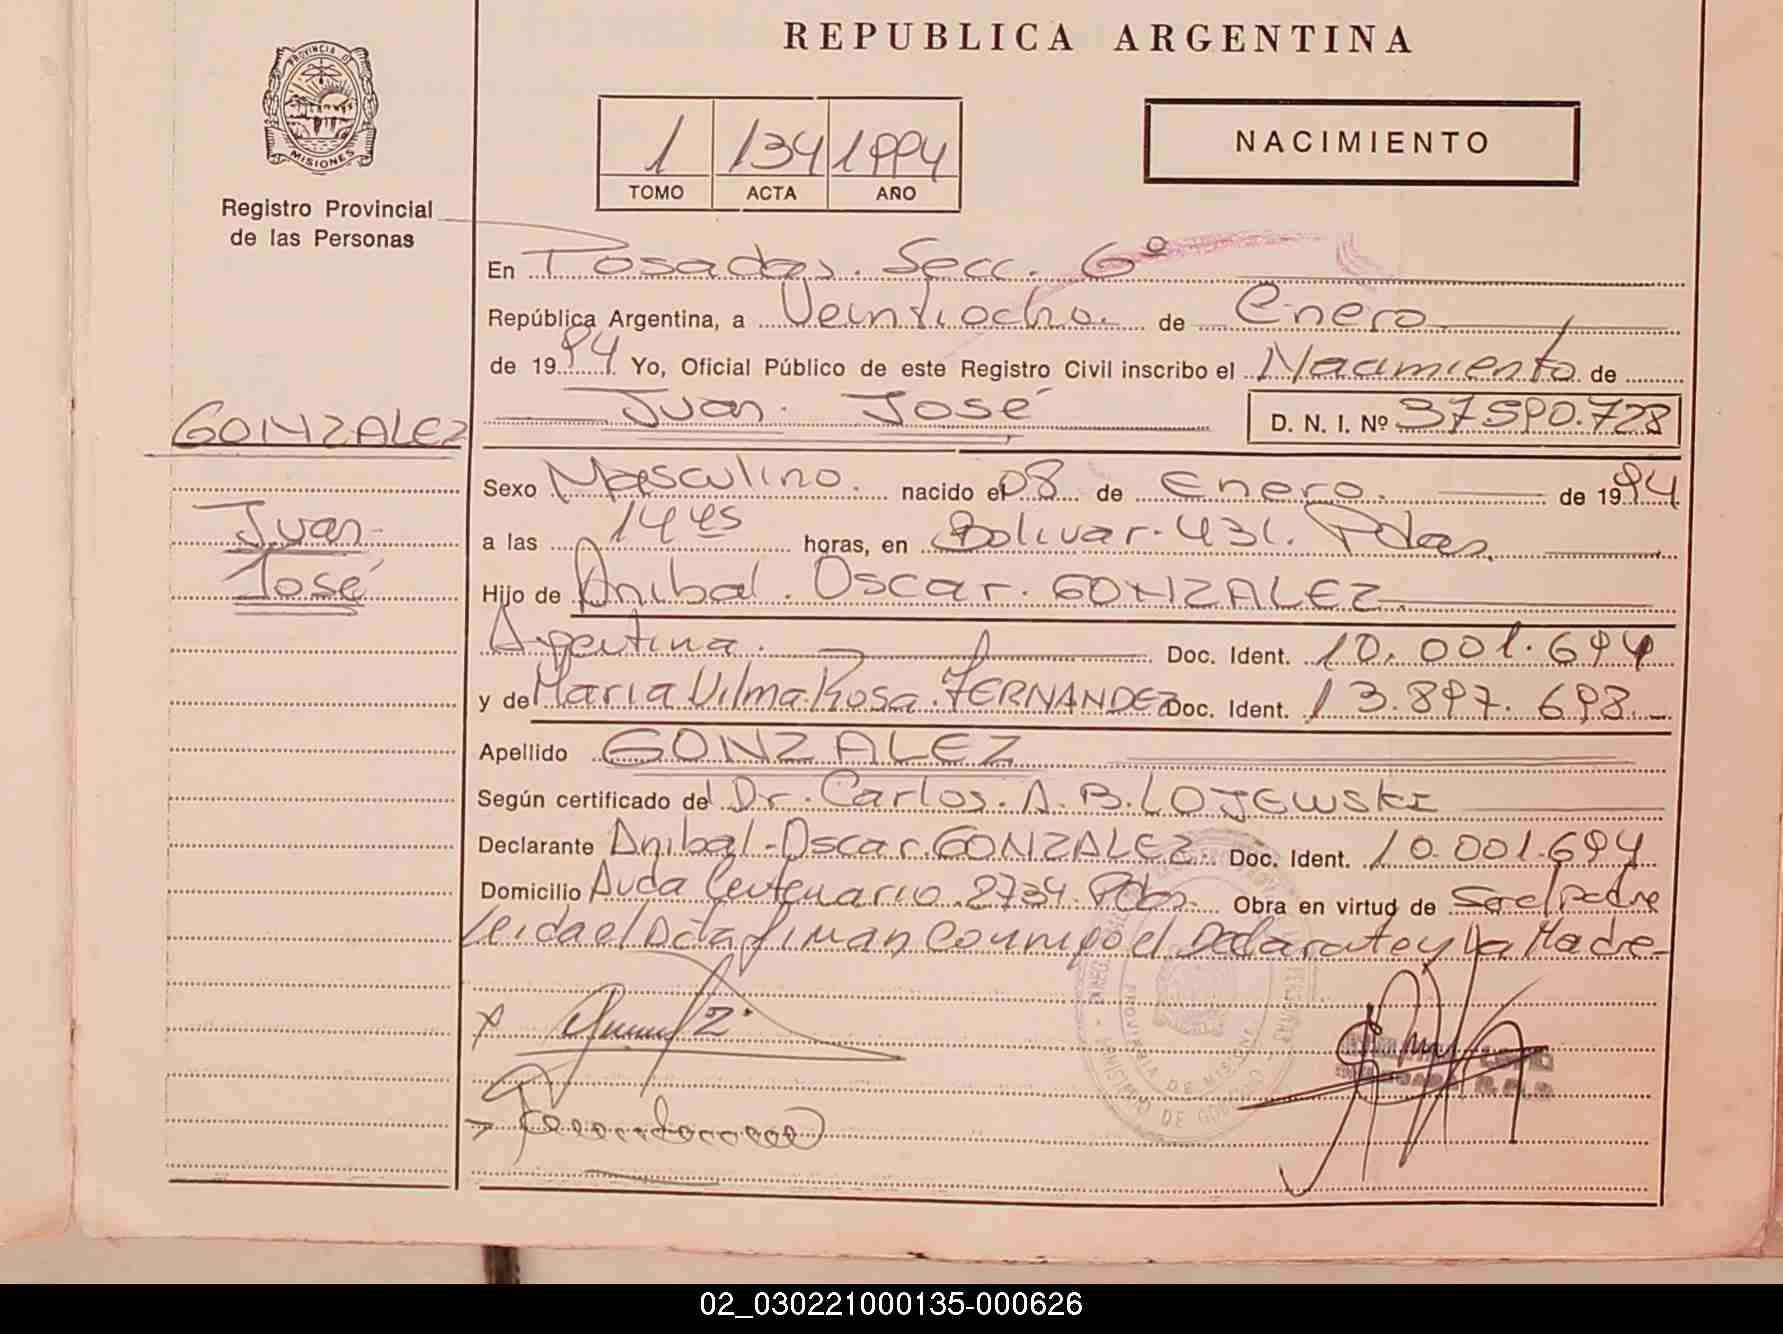 REPUBLICA ARGENTINA
PROVINCIA DE
MISIONES
Registro Provincial
de las Personas
1 134 1994
TOMO ACTA AÑO
NACIMIENTO
En Posadas. Secc. 6º
República Argentina, a Veintiocho. de Enero
de 1994 Yo, Oficial Público de este Registro Civil inscribo el Nacimiento de
Juan José D. N. I. Nº 37590.728
GONZALEZ
Juan
José
Sexo Masculino. nacido el 08 de Enero. de 1994
a las 14 45 horas, en Bolivar 431. Pdas.
Hijo de Anibal. Oscar. GONZALEZ
Argentina. Doc. Ident. 10.001.694
y de Maria Vilma Rosa. FERNANDEZ Doc. Ident. 13.897.698
Apellido GONZALEZ
Según certificado del Dr. Carlos. A. B. LOJEWSKI
Declarante Anibal-Oscar. GONZALEZ Doc. Ident. 10.001.694
Domicilio Avda Centenario 2734 Pdas. Obra en virtud de Ser el padre
Leida el Acta firman conmigo el Declarante y La Madre
PROVINCIA DE MISIONES
MINISTERIO DE GOBIERNO
02_030221000135-000626